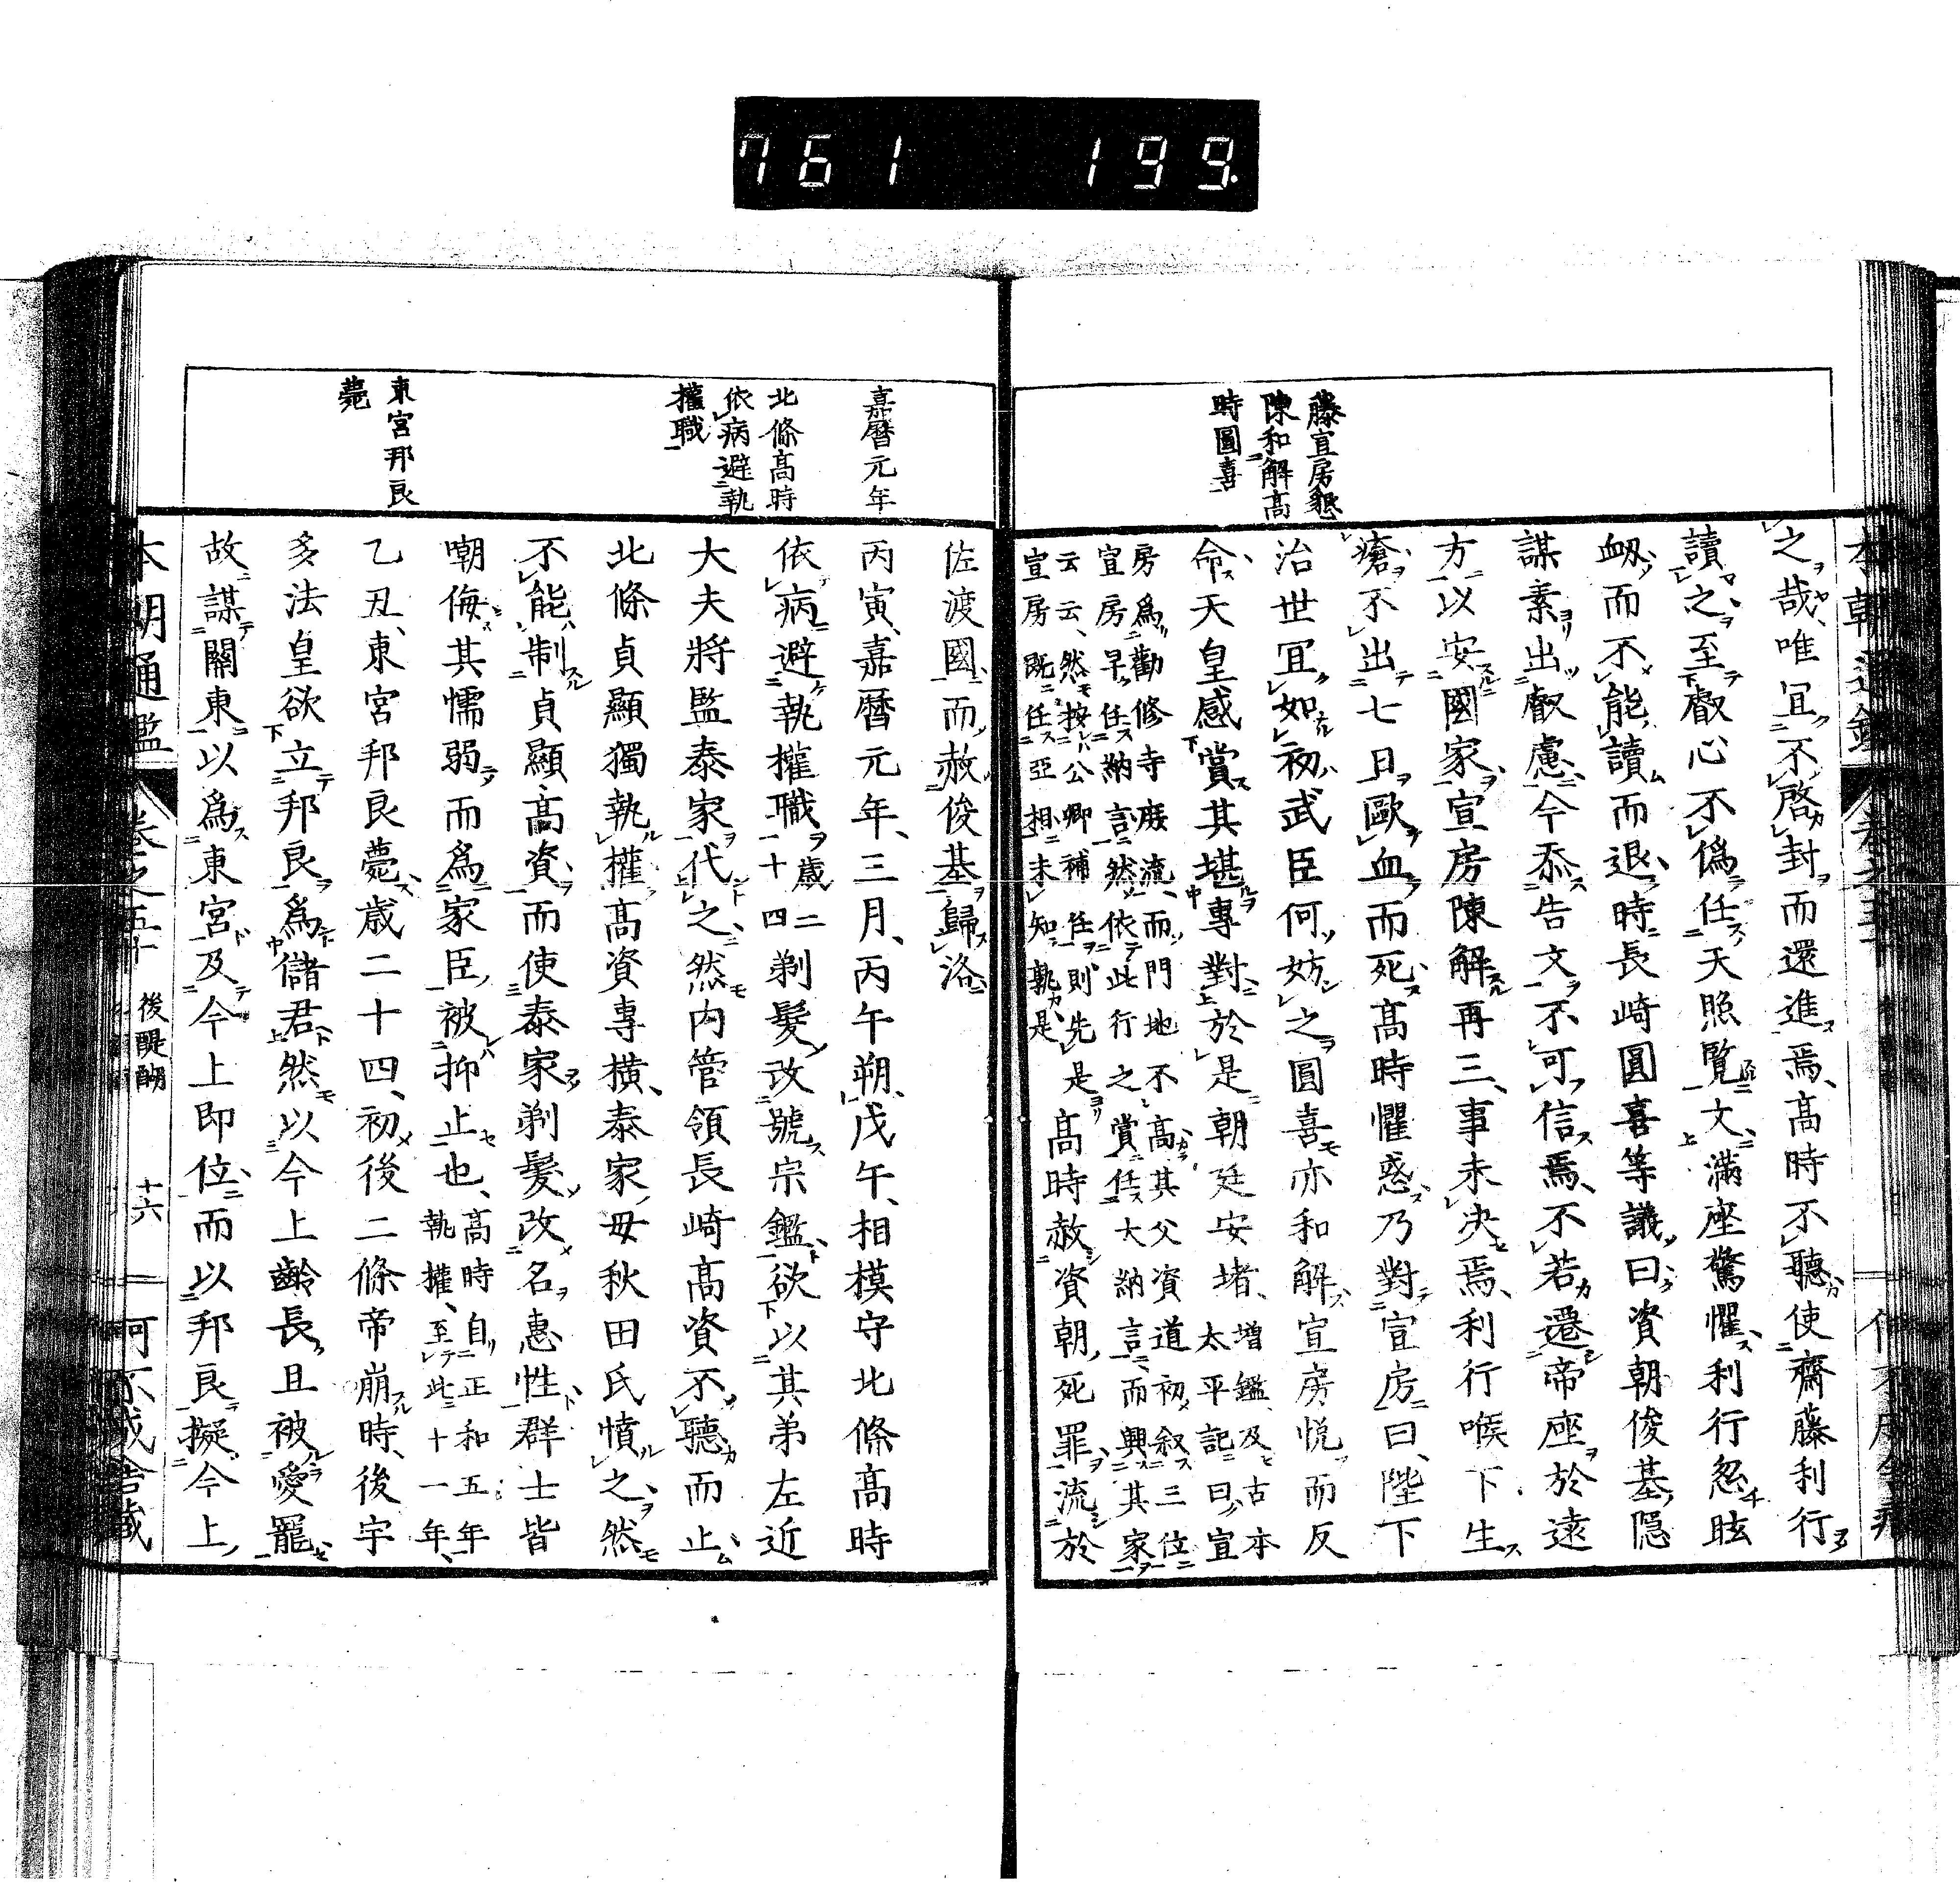 761 199
藤宣房懇
陳和解高
時圓喜
之哉唯宜不啓封而還進焉、高時不聽使齋藤利行
讀之至叡心不僞任天照覽文滿座驚懼利行忽眩
衂而不能讀而退時長崎圓喜等議曰資朝俊基隠
謀素出叡慮今忝告文不可信焉、不若遷帝座於遠
方以安國家宣房陳解再三、事未决焉、利行喉下生
瘡不出七日歐血而死高時懼惑乃對宣房曰、陛下
治世宜如初武臣何妨之圓喜亦和解宣房悦而反
命天皇感賞其堪專對於是朝廷安堵、增鑑、及古本
太平記曰宣
房爲勸修寺庶流、而門地不高其父資道初叙三位
宣房早任納言然依此行之賞任大納言、而興其家
云云、然按公卿補任則先是
宣房既任亞相未知孰是
高時赦資朝死罪流於
嘉曆元年
北條高時
依病避執
權職
東宮邦良
薨
佐渡國而赦俊基歸洛
丙寅、嘉曆元年、三月、丙午朔、戊午、相模守北條高時
依病避執權職歳二
十四剃髮改號宗鑑欲以其弟左近
大夫將監泰家代之然内管領長崎高資不聽而止
北條貞顯獨執權高資專横、泰家母秋田氏憤之然
不能制貞顯高資而使泰家剃髮改名惠性群士皆
嘲侮其懦弱而爲家臣被抑止也、高時自正和五年
執權、至此十一年、
乙丑、東宮邦良薨歳二十四、初後二條帝崩時、後宇
多法皇欲立邦良爲儲君然以今上齡長且被愛寵
故謀關東以爲東宮及今上即位而以邦良擬今上
本朝通鑑 卷之五十 後醍醐 十六